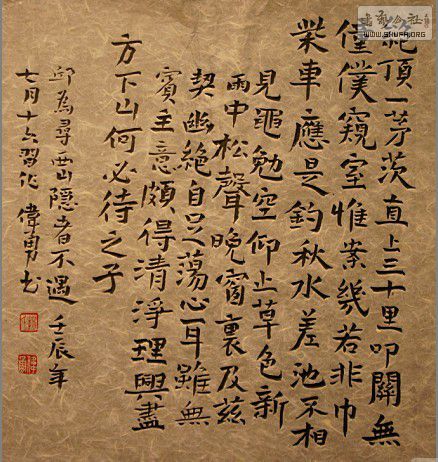 絕頂一茅茨直上三十里叩關無
僮僕窺室惟案幾若非巾
柴車應是釣秋水差池不相
見黽勉空仰止草色新
雨中松聲晚窗裏及茲
契幽絕自足蕩心耳雖無
賓主意頗得清淨理興盡
方下山何必待之子
邱為尋西山隱者不遇 壬辰年
七月十六習作 偉勇书
书法公社
WWW.SHUFA.ORG